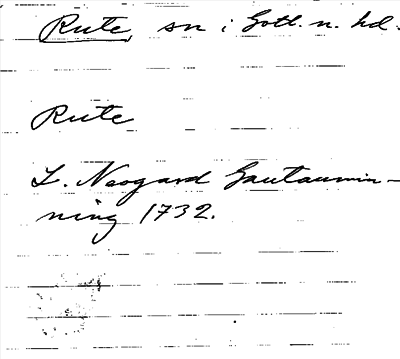 Rute, sn i Gotl. n. hd.
Rute
L. Neogard Gautaumin-
ning 1732.